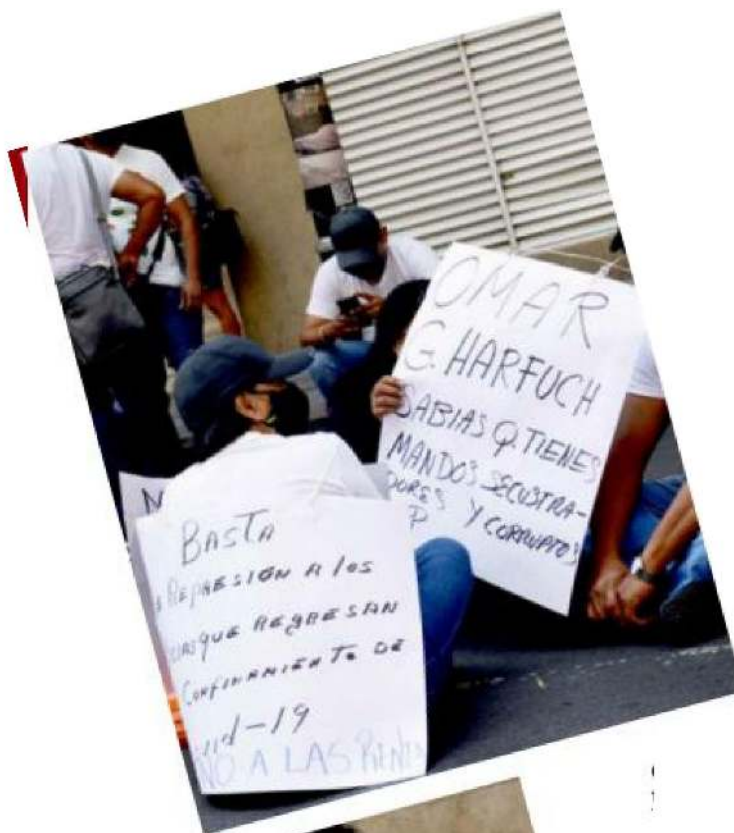 OMAR
G. HARFUCH
SABIAS Q. TIENES
MANDOS SECUSTRA-
DORES Y CORRUPTOS
P
N
BASTA
REPRESIÓN A LOS
QUE REGRESAN
CONFINAMIENTO DE
-19
NO A LAS RENTAS